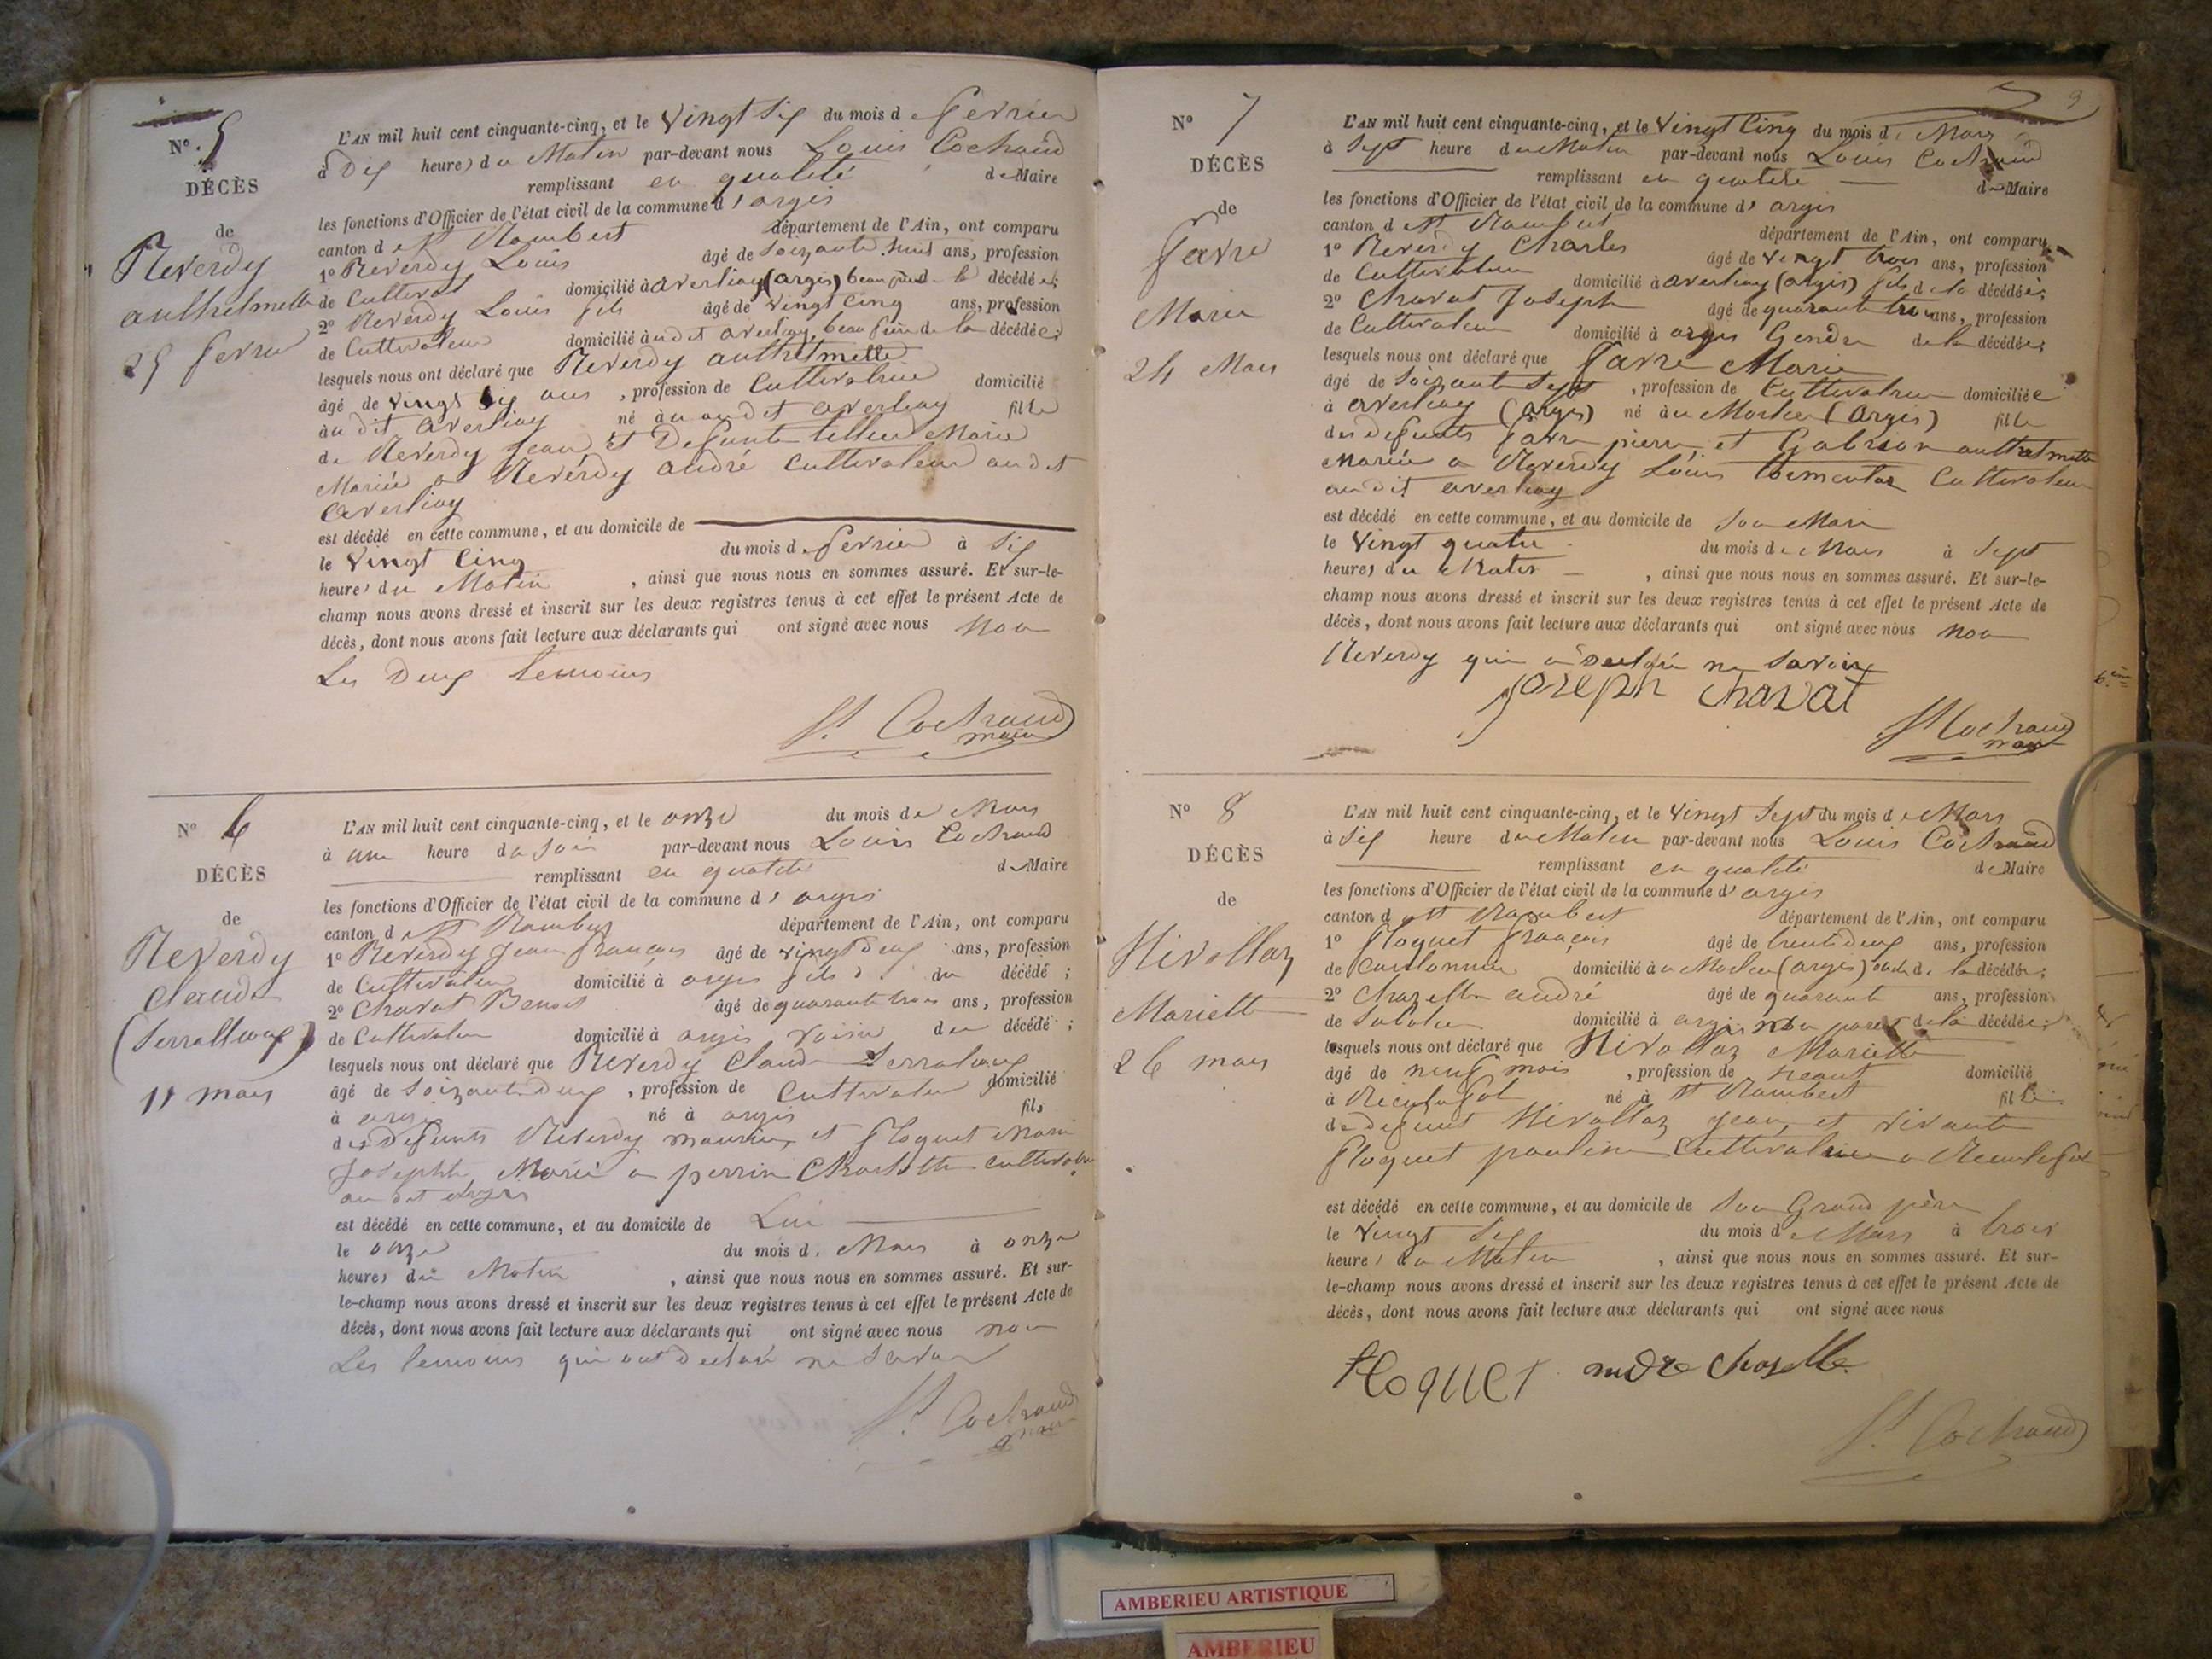 N° 5
DÉCÈS
de
Reverdy
anthelmette
25 fevrier
L'AN mil huit cent cinquante-cinq, et le vingt six du mois de fevrier
à Dix heures du Matin par-devant nous Louis Cochaud
remplissant en qualité de Maire
les fonctions d'Officier de l'état civil de la commune d'argis
canton de St Rambert département de l'Ain, ont comparu
1° Reverdy Louis âgé de Soixante ans, profession
de Cultivat domicilié à averliaz (argis) beau père de la décédée;
2° Reverdy Louis fils âgé de vingt cinq ans, profession
de Cultivateur domicilié audit averliaz beau frère de la décédée;
lesquels nous ont déclaré que Reverdy anthelmette
âgé de vingt six ans, profession de Cultivatrice domicilié
au dit averliaz né à audit averliaz fille
de Reverdy Jean et Defunte tellier Marie
Mariée a Reverdy andré Cultivateur audit
averliaz
est décédé en cette commune, et au domicile de
le vingt Cinq du mois de fevrier à Six
heures du Matin, ainsi que nous nous en sommes assuré. Et sur-le-
champ nous avons dressé et inscrit sur les deux registres tenus à cet effet le présent Acte de
décès, dont nous avons fait lecture aux déclarants qui ont signé avec nous Non
Les Deux temoins
Ls. Cochaud
maire
N° 6
DÉCÈS
de
Reverdy
Claude
11 mars
L'AN mil huit cent cinquante-cinq, et le onze du mois de Mars
à une heure du Soir par-devant nous Louis Cochaud
remplissant en qualité de Maire
les fonctions d'Officier de l'état civil de la commune d'argis
canton de St Rambert département de l'Ain, ont comparu
1° Reverdy Jean françois âgé de vingt deux ans, profession
de Cultivateur domicilié à argis fils du décédé;
2° Chavat Benoit âgé de quarante trois ans, profession
de Cultivateur domicilié à argis voisin du décédé;
lesquels nous ont déclaré que Reverdy Claude
âgé de Soixante deux, profession de Cultivateur domicilié
à argis né à argis fils
des Defunts Reverdy maurice et floquet Marie
Josephte Marié a perrin Charlotte cultivatrice
au dit argis
est décédé en cette commune, et au domicile de Lui
le onze du mois de Mars à onze
heures du Matin, ainsi que nous nous en sommes assuré. Et sur-
le-champ nous avons dressé et inscrit sur les deux registres tenus à cet effet le présent Acte de
décès, dont nous avons fait lecture aux déclarants qui ont signé avec nous non
Les temoins qui ont declaré ne Savoir
Ls. Cochaud
maire
N° 7
DÉCÈS
de
favre
Marie
24 Mars
L'AN mil huit cent cinquante-cinq, et le vingt Cinq du mois de Mars
à Sept heure du Matin par-devant nous Louis Cochaud
remplissant en qualité de Maire
les fonctions d'Officier de l'état civil de la commune d'argis
canton de St Rambert département de l'Ain, ont comparu
1° Reverdy Charles âgé de vingt trois ans, profession
de Cultivateur domicilié à averliaz (argis) fils de la décédée;
2° Chavat Joseph âgé de quarante trois ans, profession
de Cultivateur domicilié à argis Gendre de la décédée;
lesquels nous ont déclaré que favre Marie
âgé de Soixante Sept, profession de Cultivatrice domiciliée
à averliaz (argis) né au (argis) fille
des defunts favre pierre et anthelmette
Mariée a Reverdy Louis Cultivateur
au dit averliaz
est décédé en cette commune, et au domicile de Son Mari
le vingt quatre du mois de Mars à Sept
heures du Matin, ainsi que nous nous en sommes assuré. Et sur-le-
champ nous avons dressé et inscrit sur les deux registres tenus à cet effet le présent Acte de
décès, dont nous avons fait lecture aux déclarants qui ont signé avec nous non
Reverdy qui a declaré ne Savoir
Joseph Chavat
Ls Cochaud
maire
N° 8
DÉCÈS
de
Nivollaz
Mariette
26 mars
L'AN mil huit cent cinquante-cinq, et le vingt Sept du mois de Mars
à Six heure du Matin par-devant nous Louis Cochaud
remplissant en qualité de Maire
les fonctions d'Officier de l'état civil de la commune d'argis
canton de St Rambert département de l'Ain, ont comparu
1° floquet françois âgé de trente deux ans, profession
de domicilié à (argis) oncle de la décédée;
2° Chazelle andré âgé de quarante ans, profession
de Sabotier domicilié à argis non parent de la décédée
lesquels nous ont déclaré que Nivollaz Mariette
âgé de neuf mois, profession de neant domicilié
à né à St Rambert fille
de defunt Nivollaz Jean et vivante
floquet pauline Cultivatrice a
est décédé en cette commune, et au domicile de Son Grand père
le vingt Six du mois de Mars à trois
heures du Matin, ainsi que nous nous en sommes assuré. Et sur-
le-champ nous avons dressé et inscrit sur les deux registres tenus à cet effet le présent Acte de
décès, dont nous avons fait lecture aux déclarants qui ont signé avec nous
floquet andre Chazelle
Ls. Cochaud
AMBERIEU ARTISTIQUE
AMBERIEU